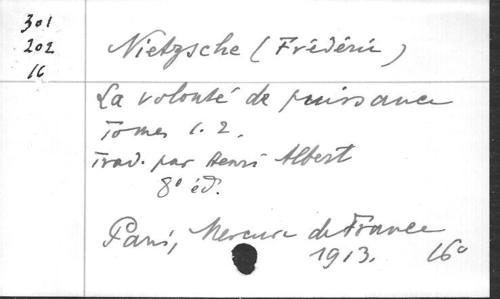 301
202
16
Nietzsche (Frédéric)
La volonté de puissance
Tomes 1.2.
Trad. par Henri Albert
8° éd.
Paris, Mercure de France
1913. 16°